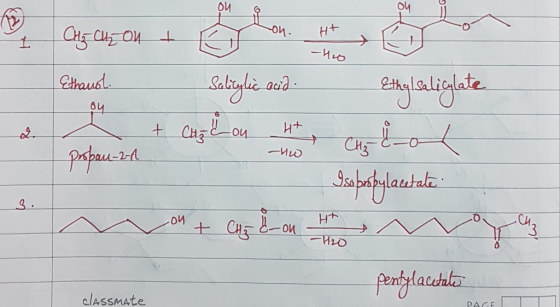 12
1. CH3-CH2-OH + OH O OH. H+ -H2O OH O O
Ethanol. Salicylic acid. Ethylsalicylate
2. OH + CH3-C-OH O H+ -H2O CH3-C-O O
propan-2-ol Isopropylacetate.
3. OH + CH3-C-OH O H+ -H2O O CH3 O
pentylacetate
classmate PAGE